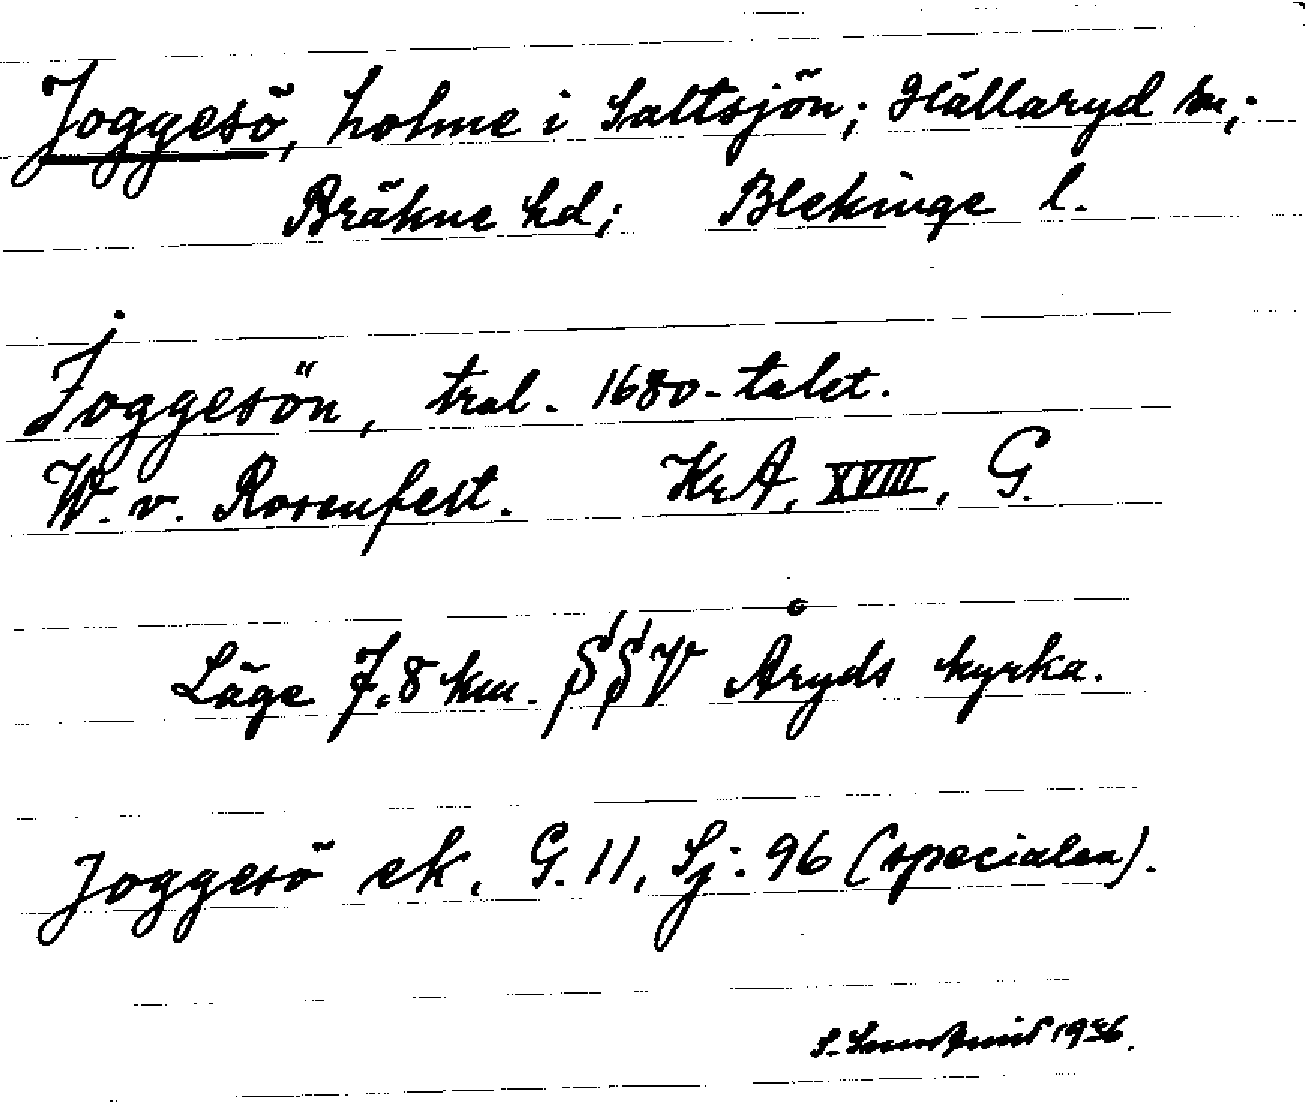 Joggesö, holme i Saltsjön; Hällaryd sn;
Bräkne hd; Blekinge l.
Joggesön, tral. 1680-talet.
W. v. Rosenfelt. KrA, XVIII, G.
Läge 7.8 km. SSV Åryds kyrka.
Joggesö ek. G. 11, Sj: 96 (specialen).